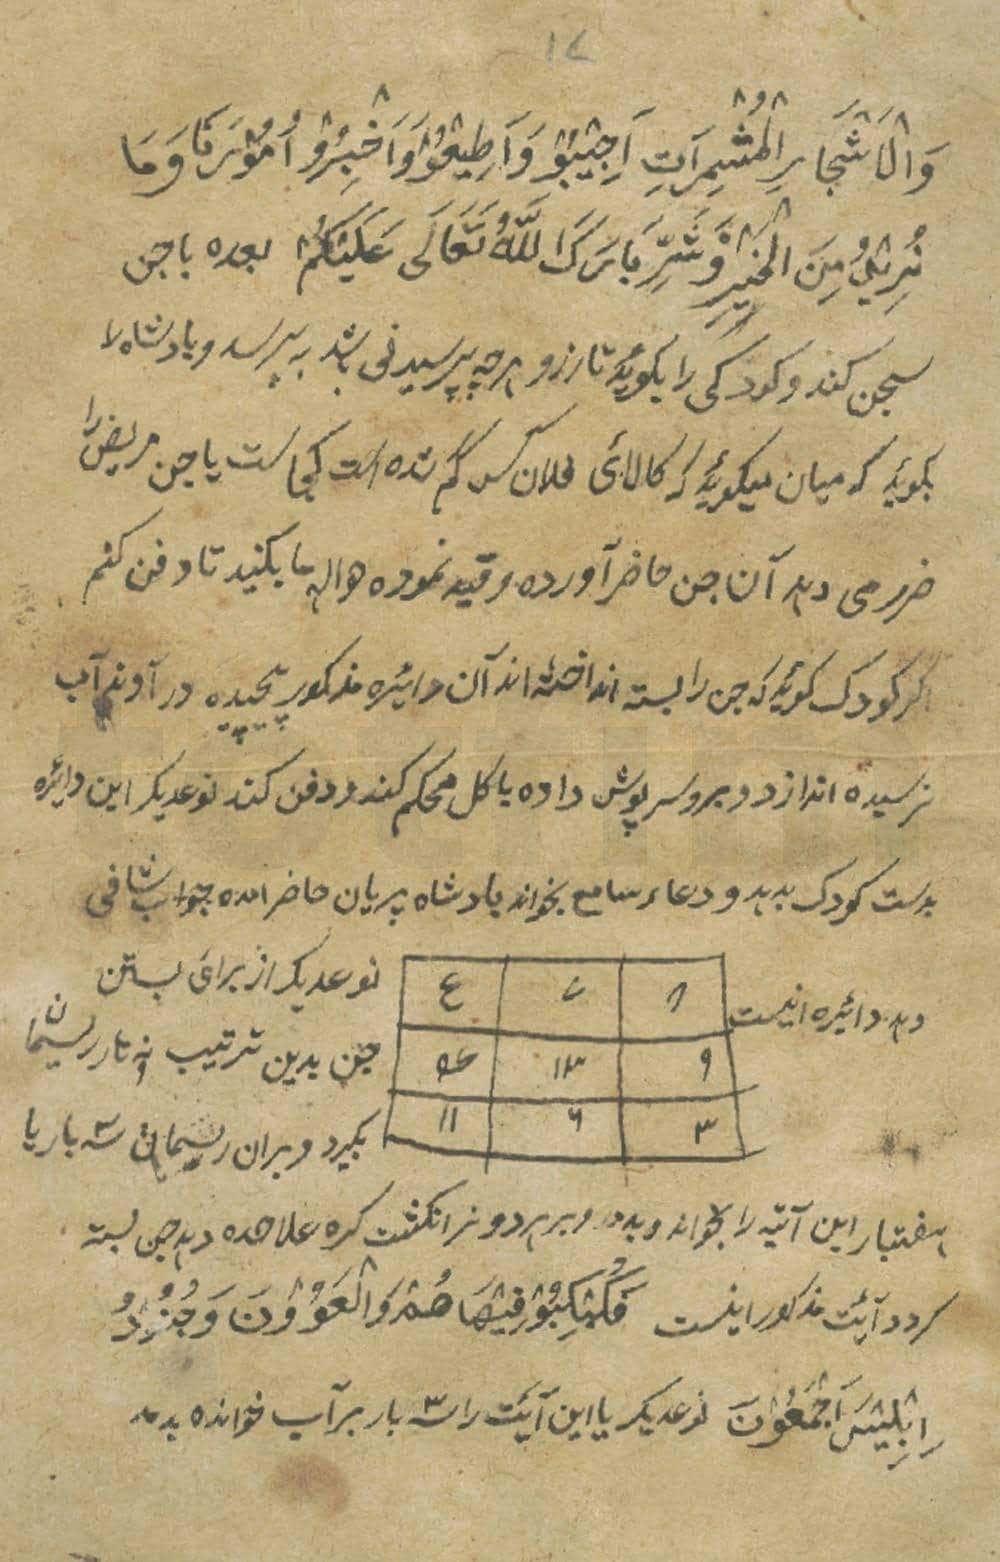 ۱۷
وَالْاَشَجَارِ الْمُثْمِرَاتِ اَجِیْبُوْ وَاَطِیْعُوْا وَاَخْبِرُوْ اُمُوْرَنَا وَمَا
نُرِیْدُ مِنَ الْخَیْرِ وَشَرِّ بَارَكَ اللّٰهُ تَعَالَی عَلَیْكُمْ بعده با جن
سجن کند و کودکی را بگوید تا ارزو هرچه پرسیدنی باشد به پرسد و پادشاه را
بگوید که میان میگوید که کالای فلان کس گم شده است کجاست یا جن مریض را
ضرر می دهد آن جن حاضر آورده و قید نموده هواله ما بکنید تا دفن کنم
اگر کودک گوید که جن را بسته انداخته اند آن دائره مذکور پیچیده در آوند آب
نرسیده اندازد و برو سرپوش داده با گل محکم کند و دفن کند نوعدیگر این دائره
بدست کودک بدهد و دعاء سامع بخواند پادشاه پریان حاضر امده جواب شافی
دهد دائره اینست
۸ ۷ ع
۹ ۱۳
۳ ۶ ۱۱
نوعدیگر از برای بستن
جن بدین ترتیب نه تار ریسمان
بگیرد و بران ریسمان سه بار یا
هفتبار این آئیه را بخواند و بدمد و بر هر دو نر انگشت گره علاحده دهد جن بسته
گردد آئت مذکور اینست فَكُبْكِبُوْ فِیْهَا هُمْ وَالْغَوٗوْنَ وَجُنُوْدُ
اِبْلِیْسَ اَجْمَعُوْنَ نوعدیگر یا این آئت را سه بار بر آب خوانده بدمد